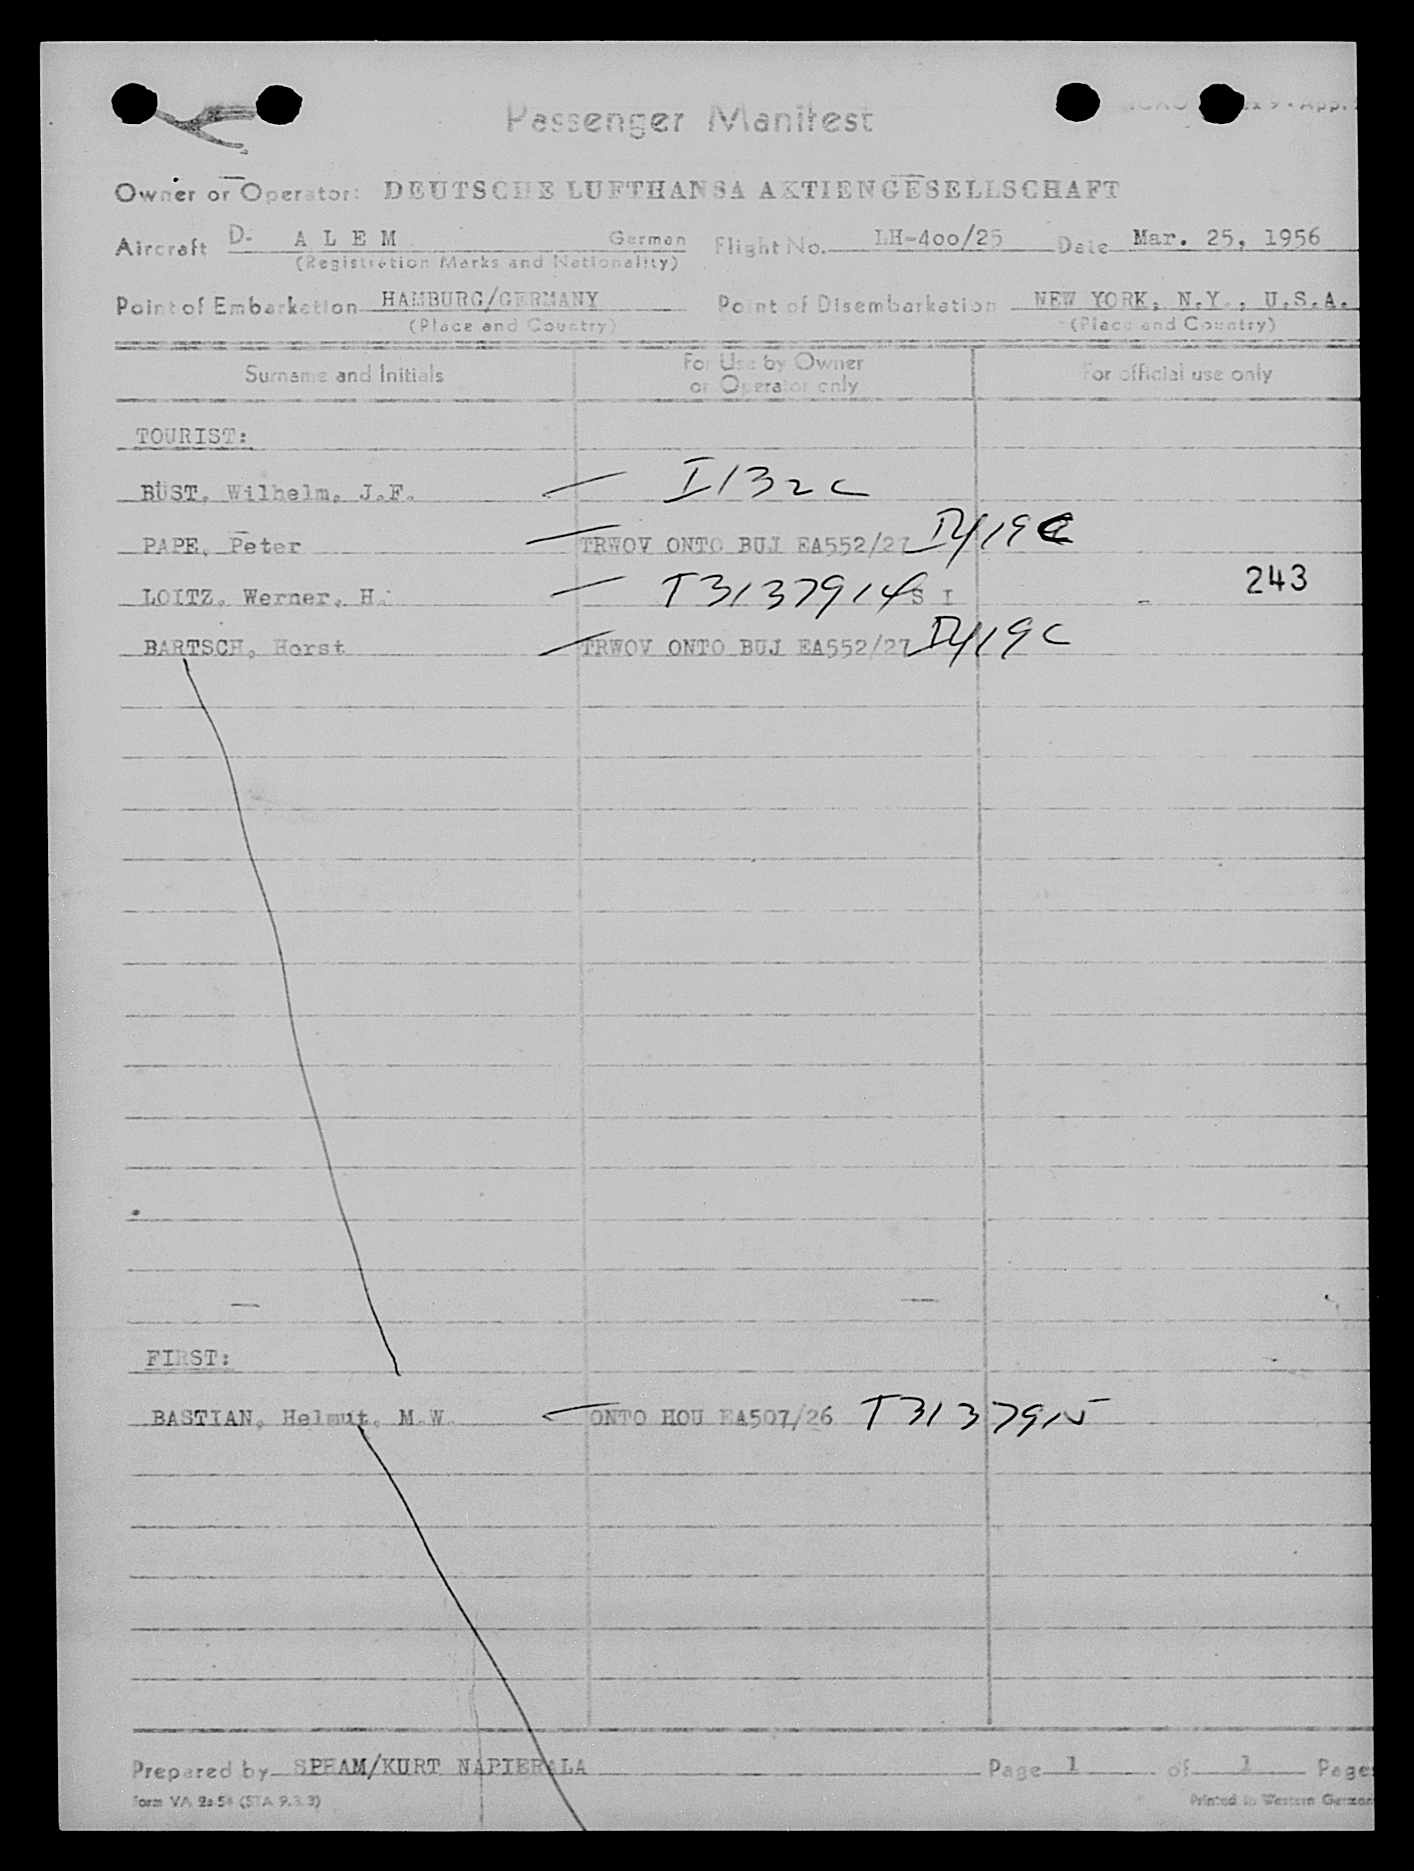 Passenger Manifest
Owner or Operator: DEUTSCHE LUFTHANSA AKTIENGESELLSCHAFT
Aircraft D- A L E M German Flight No. LH-400/25 Date Mar. 25, 1956
(Registration Marks and Nationality)
Point of Embarkation HAMBURG/GERMANY Point of Disembarkation NEW YORK, N.Y., U.S.A.
(Place and Country) (Place and Country)
Surname and Initials For Use by Owner or Operator only For official use only
TOURIST:
BÜST, Wilhelm, J.F. I132C
PAPE, Peter TRWOV ONTO BUJ EA552/27 IY19C
LOITZ, Werner, H. T3137914 S I 243
BARTSCH, Horst TRWOV ONTO BUJ EA552/27 IY19C
FIRST:
BASTIAN, Helmut, M.W. ONTO HOU EA507/26 T3137915
Prepared by SPHAM/KURT NAPIERALA Page 1 of 1 Pages
Form VA 2a-54 (STA 9.3.3) Printed in Western German